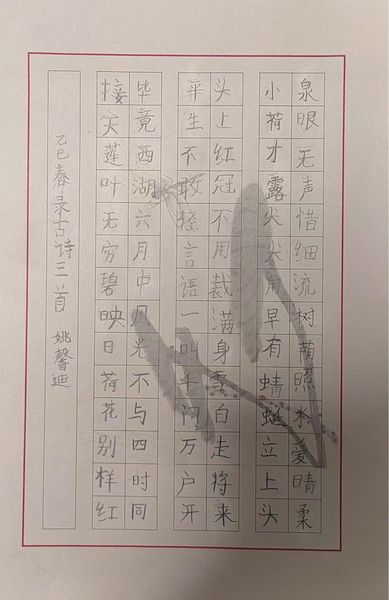 泉眼无声惜细流树荫照水爱晴柔
小荷才露尖尖角早有蜻蜓立上头
头上红冠不用裁满身雪白走将来
平生不敢轻言语一叫千门万户开
毕竟西湖六月中风光不与四时同
接天莲叶无穷碧映日荷花别样红
乙巳春录古诗三首 姚馨迪